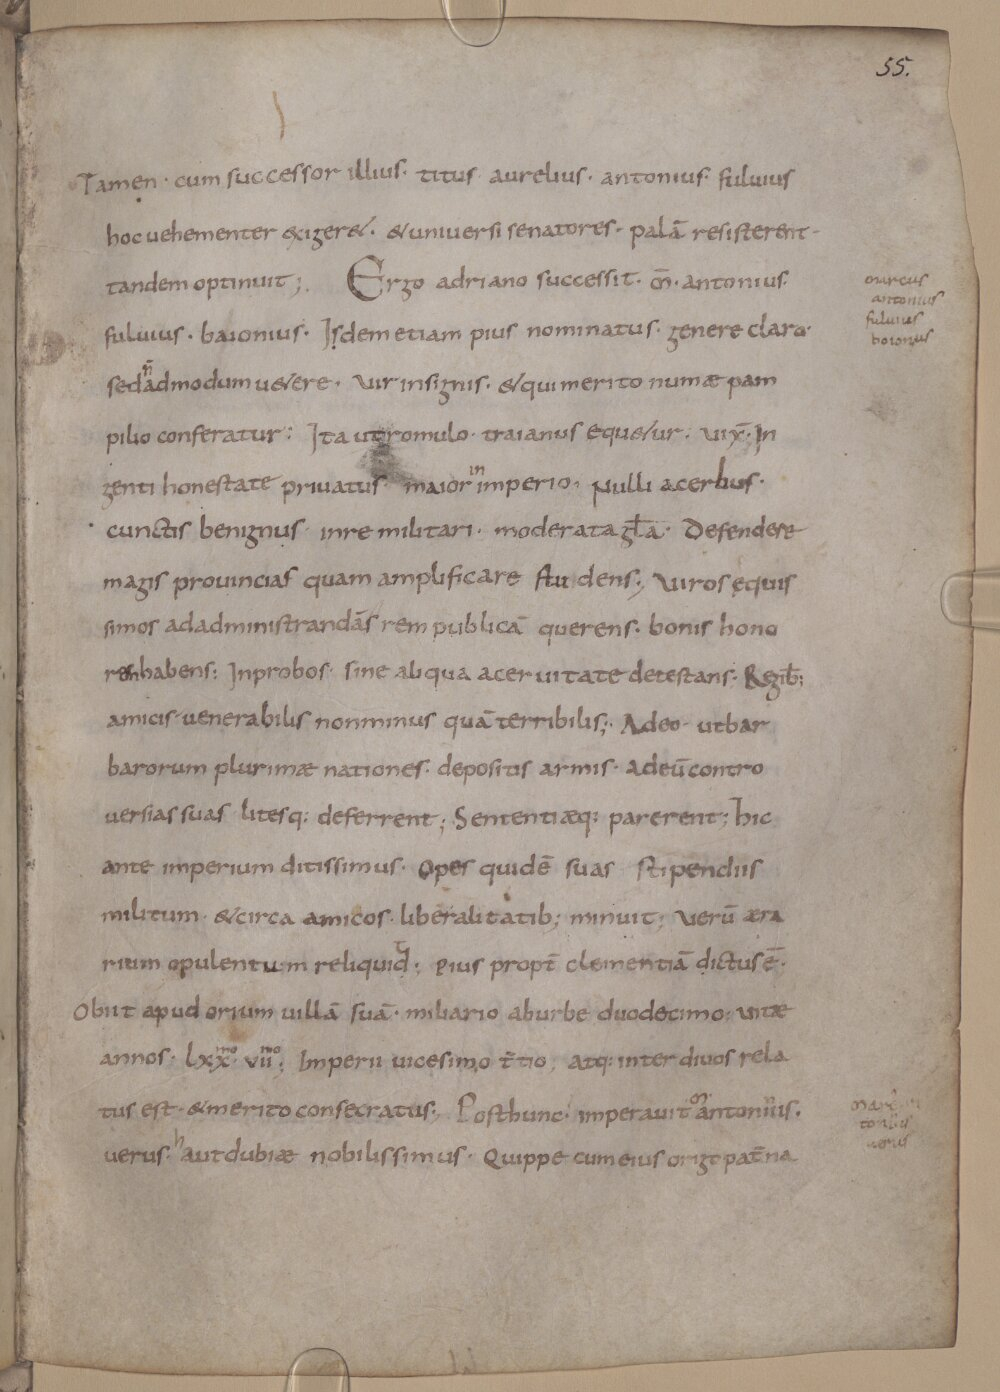 55.
Tamen · cum successor illius · titus aurelius · antonius · fuluius
hoc uehementer exiger& · & uniuersi senatores · palā resisterent ·
tandem optinuit ; Ergo adriano successit · m̄ · antonius ·
marcus
antonius
fuluius
boionius
fuluius · baionius · Isdem etiam pius nominatus · genere claro ·
sed ñ admodum u&ere · uir insignis · & qui merito numæ pam
pilio conferatur : Ita ut romulo · traianus equ&ur · uix̄ · In
genti honestate priuatus · maior in imperio · Nulli acerbus ·
cunctis benignus · in re militari · moderata gl̄a · Defendere
magis prouincias quam amplificare studens ; Uiros equis
simos ad administrandā rem publicā querens · bonis hono
rē habens ; Inprobos · sine aliqua aceruitate detestans · Regib ;
amicis uenerabilis non minus quā terribilis ; · Adeo · ut bar
barorum plurimæ nationes · depositis armis · ad eū contro
uersias suas litesq : deferrent ; Sententiæq : parerent ; hic
ante imperium ditissimus · Opes quidē suas stipendiis
militum · & circa amicos · liberalitatib ; minuit ; Uerū æra
rium opulentum reliquid t ; Pius propt̄ clementiā dictus ē ·
Obiit apud orium uillā suā · miliario ab urbe duodecimo ; uitæ
annos · lxx mo · uii mo ; Imperii uicesimo t̄tio ; atq : inter diuos rela
tus est · & merito consecratus ; Post hunc · imperauit m̄ antonius ·
uerus · h aut dubiæ nobilissimus · Quippe cum eius origo pat̄na
uerus